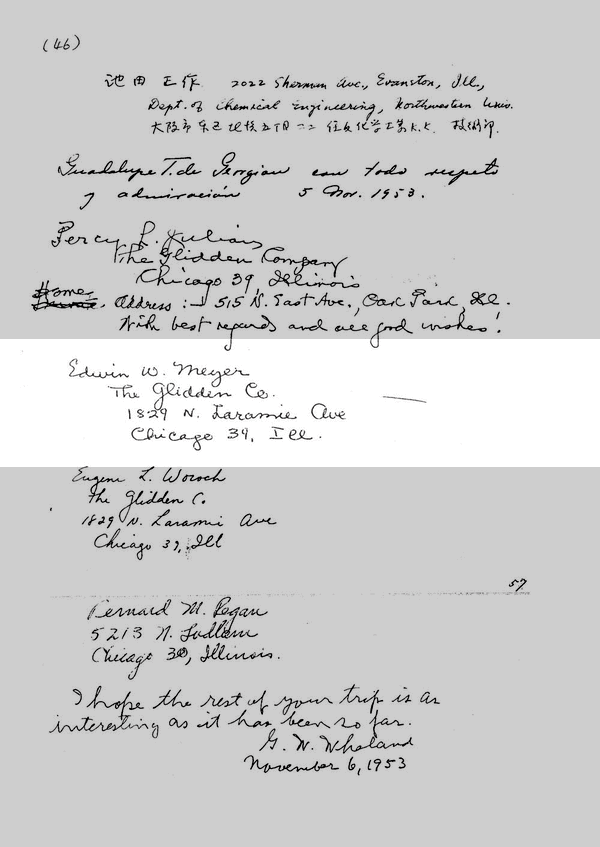 (46)
池田 正作 2022 Sherman Ave., Evanston, Ill.,
Dept. of Chemical Engineering, Northwestern Univ.
大阪市 住友化学工業K.K. 技術部
Guadalupe T. de Georgian con todo respeto
y admiración 5 Nov. 1953.
Percy L. Julian
The Glidden Company
Chicago 39, Illinois
Home
Address :- 515 N. East Ave., Oak Park, Ill.
With best regards and all good wishes!
Edwin W. Meyer
The Glidden Co.
1829 N. Laramie Ave
Chicago 39, Ill.
Eugene L. Woroch
The Glidden C.
1829 N. Laramie Ave
Chicago 39, Ill
57
Bernard M. Regan
5213 N. Ludlam
Chicago 30, Illinois.
I hope the rest of your trip is as
interesting as it has been so far.
G. W. Wheland
November 6, 1953